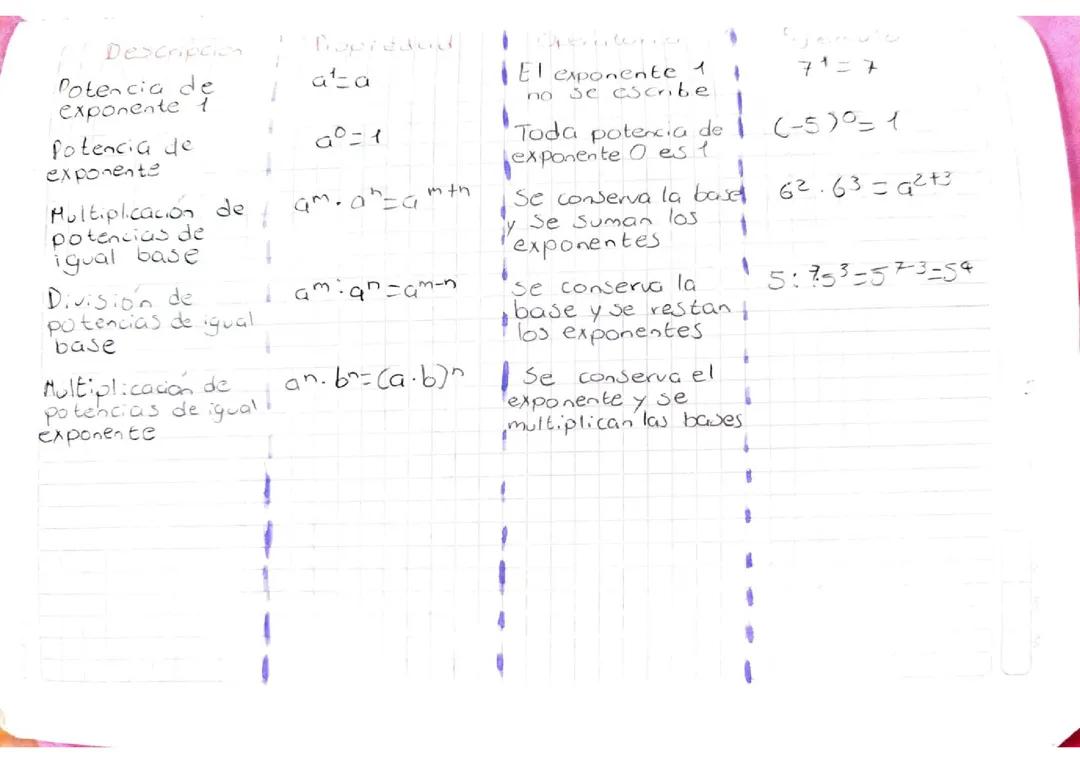 Descripción Propiedad
Potencia de
exponente 1
a¹=a
El exponente 1
no se escribe
7¹=7
Potencia de
exponente
a⁰=1
Toda potencia de
exponente 0 es 1
(-5)⁰=1
Multiplicación de
potencias de
igual base
aᵐ·aⁿ=aᵐ⁺ⁿ
Se conserva la base
y se suman los
exponentes
6²·6³=a²⁺³
División de
potencias de igual
base
aᵐ:aⁿ=aᵐ⁻ⁿ
se conserva la
base y se restan
los exponentes
5:⁷5³=5⁷⁻³=5⁴
Multiplicación de
potencias de igual
exponente
aⁿ·bⁿ=(a·b)ⁿ
Se conserva el
exponente y se
multiplican las bases